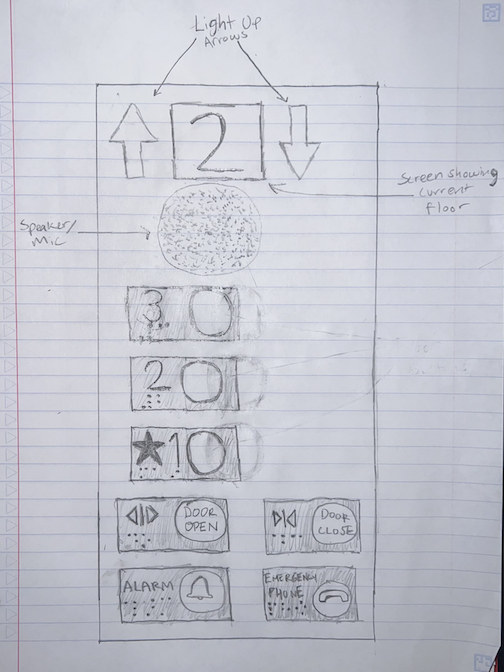 Light Up
Arrows
2
Screen showing
current
floor
Speaker/
Mic
3
2
★1
DOOR
OPEN
DOOR
CLOSE
ALARM
EMERGENCY
PHONE